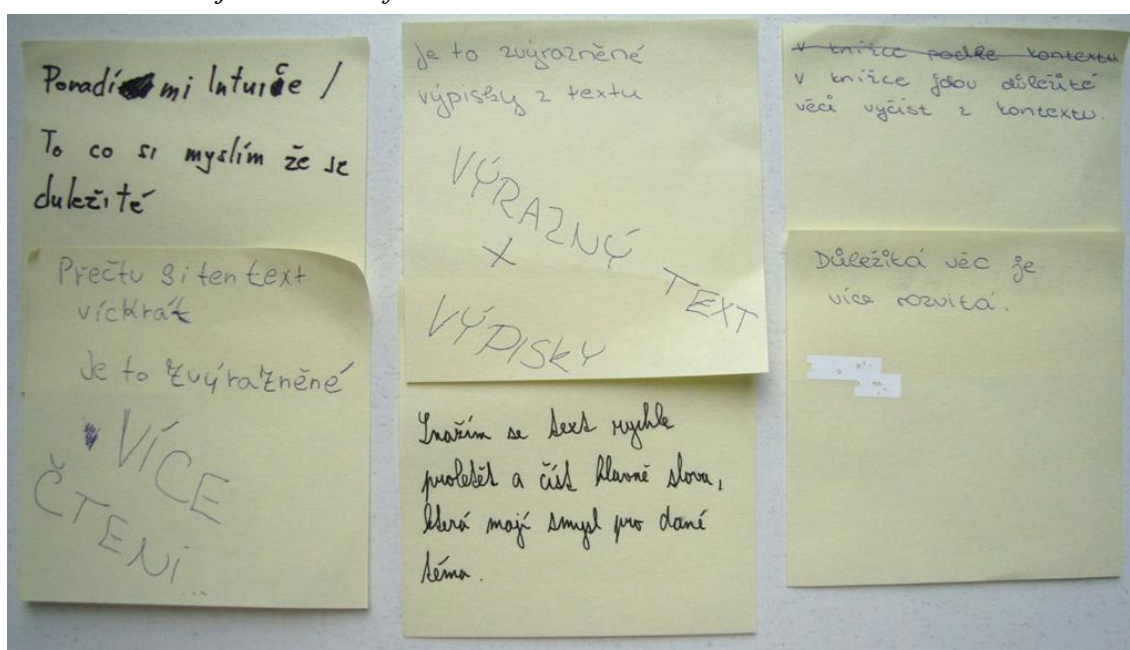 Poradí mi Intuice /
To co si myslím že je
duležité
Přečtu si ten text
víckrát
Je to zvýrazněné
VÍCE
ČTENÍ...
Je to zvýrazněné
výpisky z textu
VÝRAZNÝ
TEXT
X
VÝPISKY
Snažím se text rychle
proletět a číst hlavně slova,
která mají smysl pro dané
téma.
v knížce podle kontextu
v knížce jdou důležité
věci vyčíst z kontextu.
Důležitá věc je
více rozvitá.